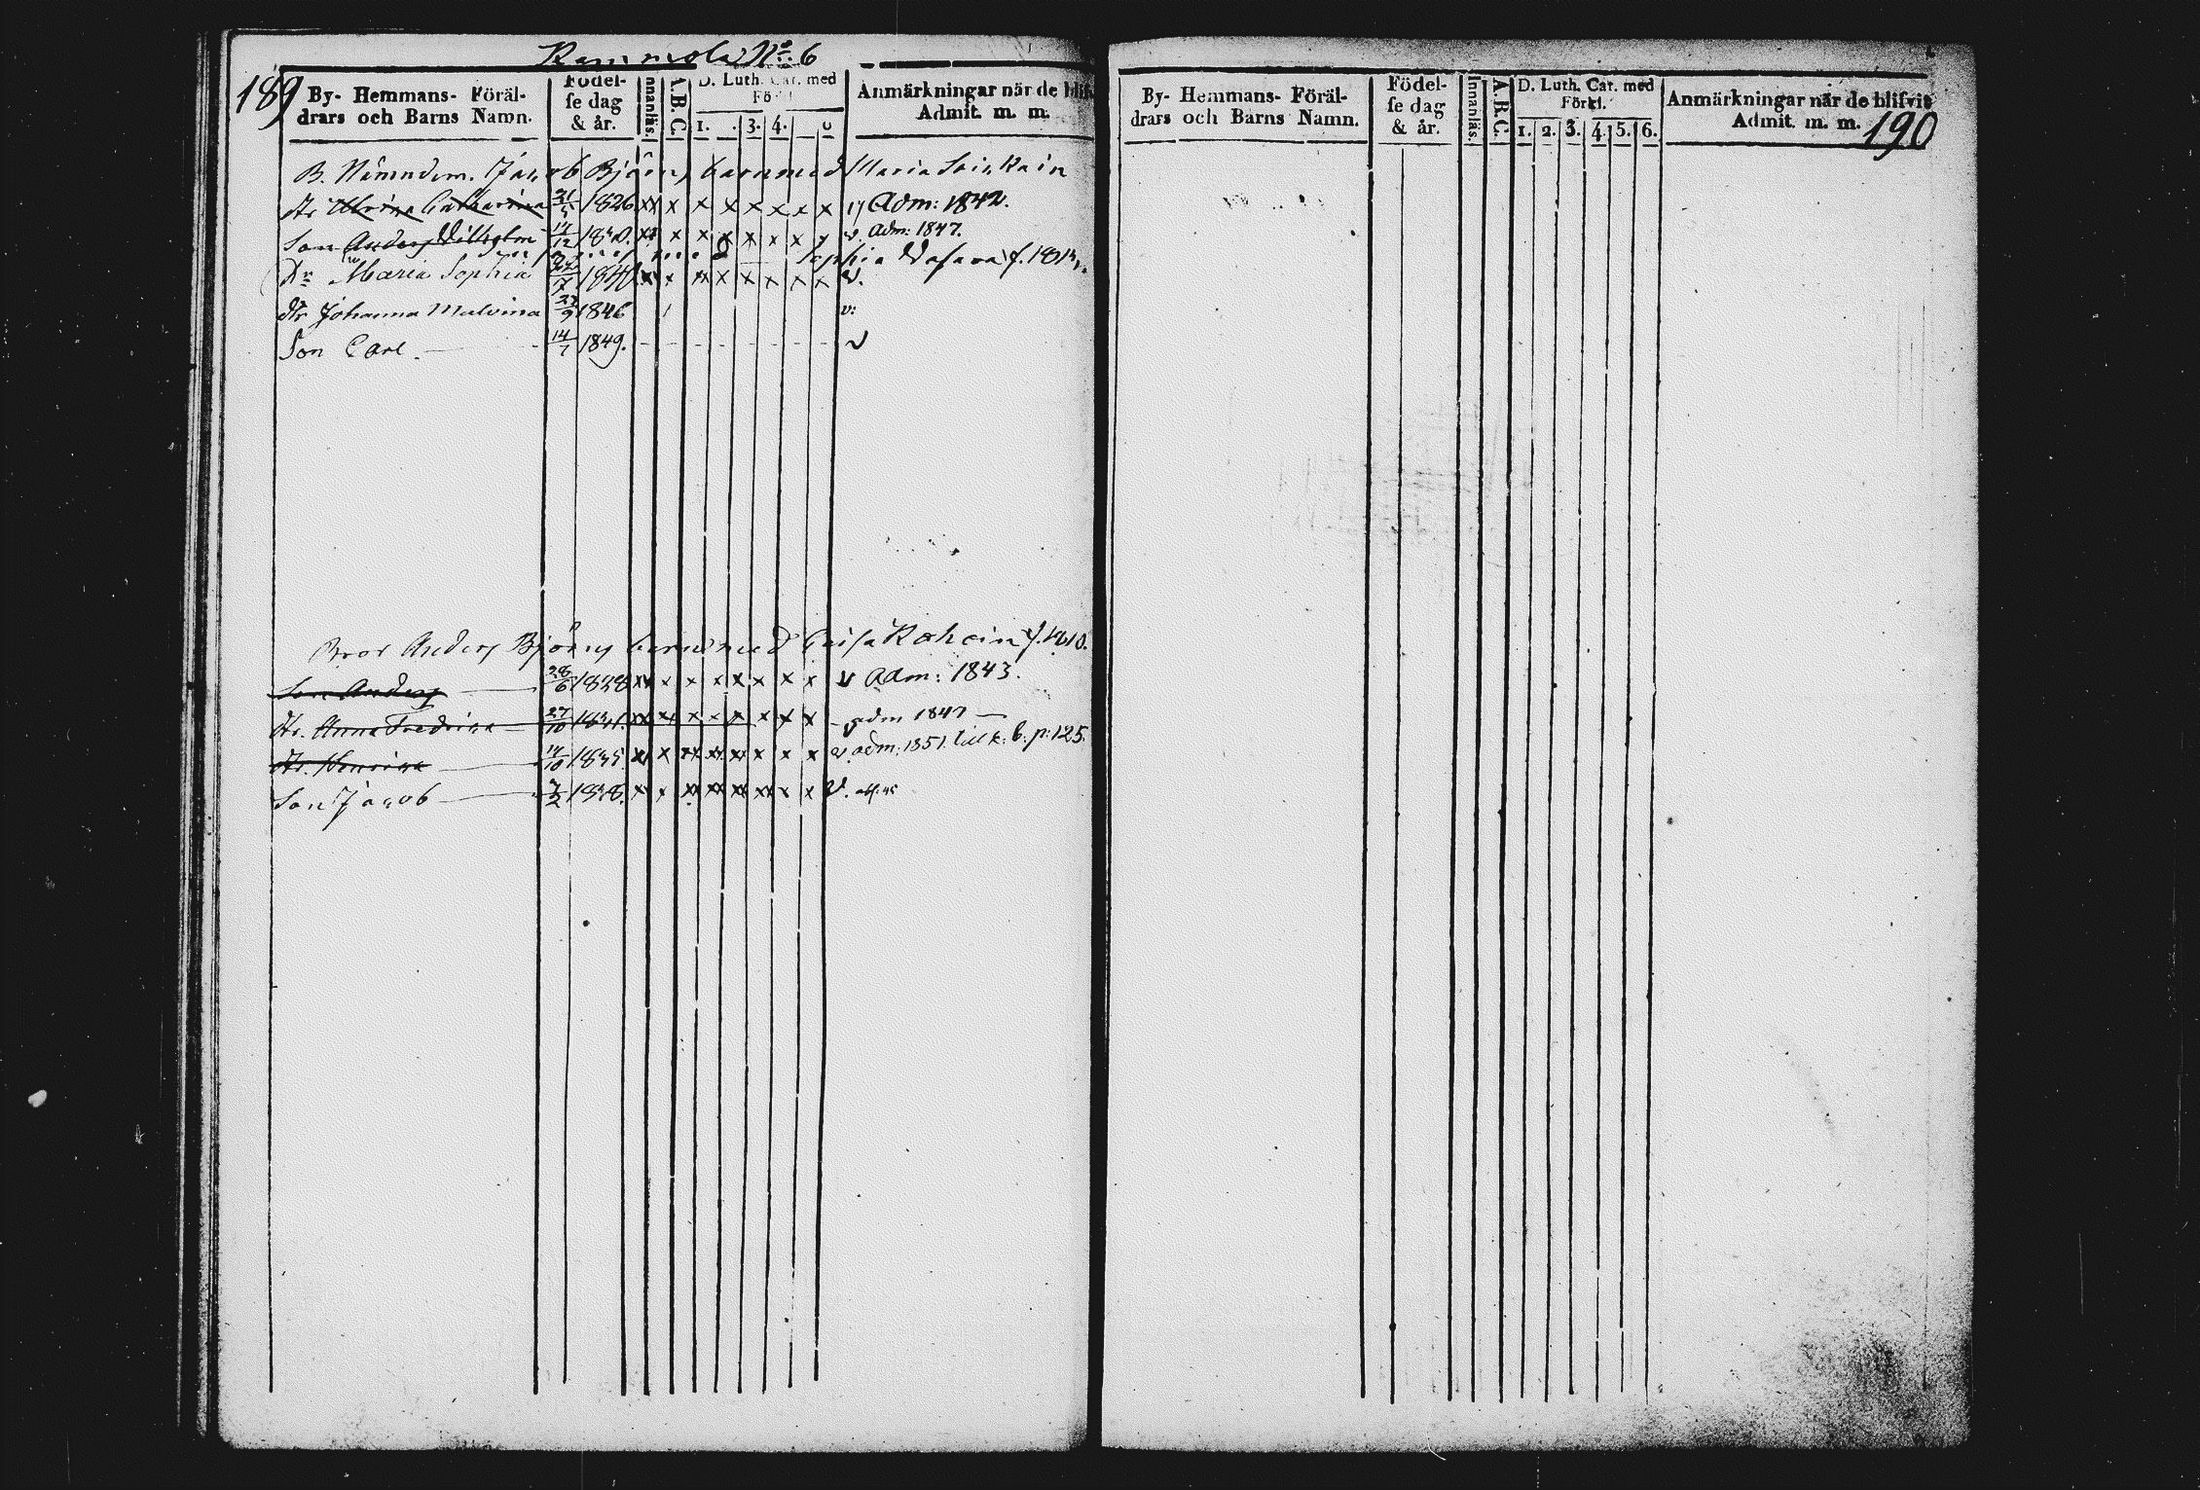 189
Rammola No. 6
By- Hemmans- Föräl-
drars och Barns Namn.
Födel-
se dag
& år.
Innanläs.
A.B.C.
D. Luth. Cat. med
1. 3. 4.
Anmärkningar när de
Admit. m. m.
B. Nämndem. Jacob Björns barn med Maria
dr Catharina 1826 x x x x x x x Adm: 1842.
Son Anders Wilhelm 17/12 x x x x x x v adm: 1847.
med Sophia
Dr Maria Sophia 1840 x x x x x x x v.
dr Johanna Malvina 1846 v:
Son Carl. 14/7 1849. v
Bror Anders Björns barn med Caisa f. 1810.
Son Anders 28/6 1828 x x x x x x x v Adm: 1843.
dr. Anna Fredrika 27/10 x x x x x x adm 1847
dr. Henrika 1835 x x x x x x x v. adm: 1851. till k: b: p: 125.
Son Jacob 1838. x x x x x x x v.
By- Hemmans- Föräl-
drars och Barns Namn.
Födel-
se dag
& år.
Innanläs.
A.B.C.
D. Luth. Cat. med
Förkl.
1. 2. 3. 4. 5. 6.
Anmärkningar när de blifvit
Admit. m. m.
190